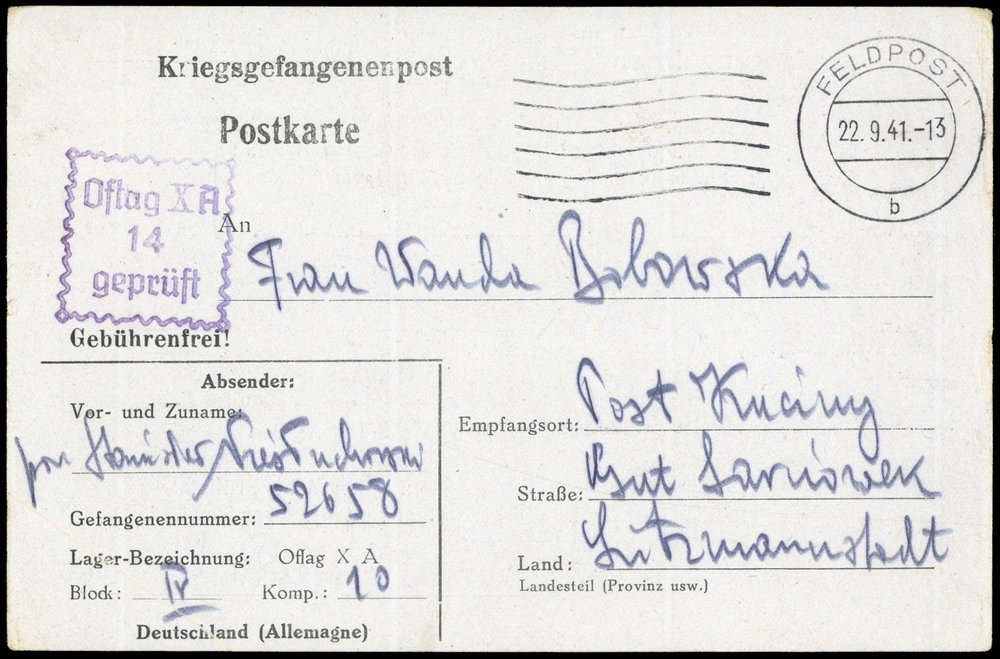 Kriegsgefangenenpost
Postkarte
FELDPOST
22.9.41.-13
b
Oflag X A
14
geprüft
An
Frau Wanda Bobowska
Gebührenfrei!
Absender:
Vor- und Zuname:
por Stanisław
Gefangenennummer: 52658
Lager-Bezeichnung: Oflag X A
Block: IV Komp.: 10
Deutschland (Allemagne)
Empfangsort: Post Kuciny
Straße: Gut Sarnowek
Land: Litzmannstadt
Landesteil (Provinz usw.)